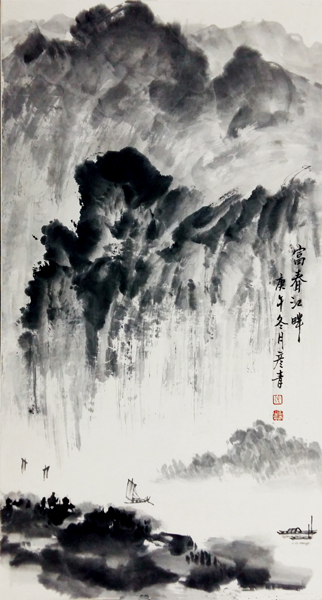 富春江畔
庚午冬月彦青